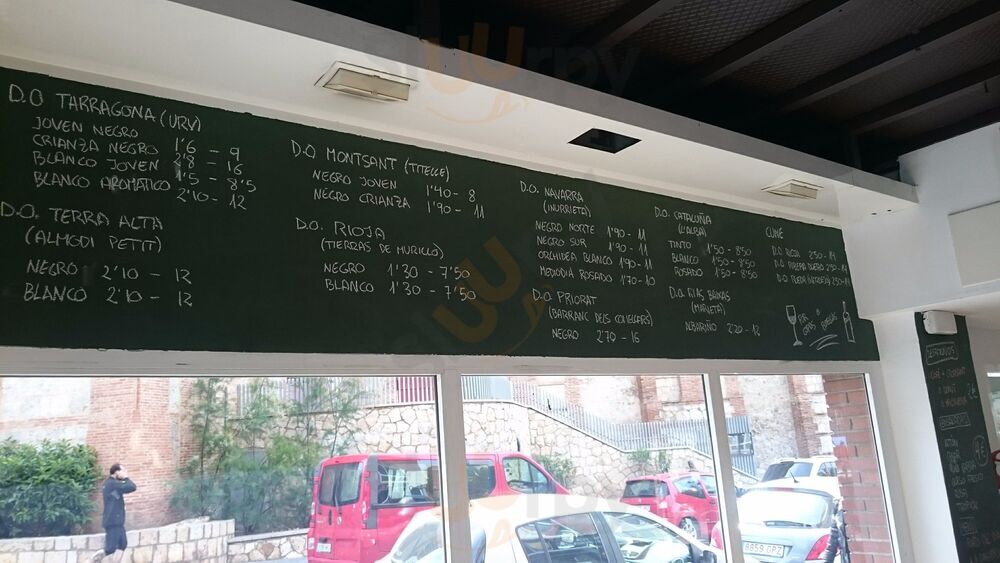 D.O TARRAGONA (URV)
JOVEN NEGRO 1'6 - 9
CRIANZA NEGRO 2'8 - 16
BLANCO JOVEN 1'5 - 8'5
BLANCO AROMATICO 2'10 - 12
D.O. TERRA ALTA
(ALMODI PETIT)
NEGRO 2'10 - 12
BLANCO 2'10 - 12
D.O. MONTSANT (TITELLE)
NEGRO JOVEN 1'40 - 8
NEGRO CRIANZA 1'90 - 11
D.O. RIOJA
(TIERRAS DE MURILLO)
NEGRO 1'30 - 7'50
BLANCO 1'30 - 7'50
D.O. NAVARRA
(INURRIETA)
NEGRO NORTE 1'90 - 11
NEGRO SUR 1'90 - 11
ORCHIDEA BLANCO 1'90 - 11
MEDIODIA ROSADO 1'70 - 10
D.O. PRIORAT
(BARRANC DELS CLOSELLARS)
NEGRO 2'70 - 16
D.O. CATALUÑA
(L'ALBA)
TINTO 1'50 - 8'50
BLANCO 1'50 - 8'50
ROSADO 1'50 - 8'50
D.O. RIAS BAIXAS
(MARIETA)
ALBARIÑO 2'20 - 12
CUNÉ
D.O. RIOJA 2'50 - 14
D.O. RIBERA DUERO 2'50 - 14
D.O. RUEDA 2'50 - 14
POR COPAS o BOTELLAS
DESAYUNOS
CAFÉ + CROISSANT
2€
ATÚN
QUESO FRESCO
8859 GPZ